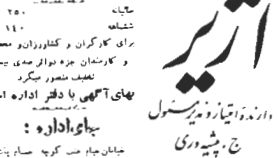 آژیر
دارنده امتیاز و مدیر مسئول
ج. پیشه وری
سالیانه ۲۵۰
ششماهه ۱۴۰
برای کارگران و کشاورزان و محص
و کارمندان جزء دوائر صدی بیست
تخفیف منظور میگردد
بهای آگهی با دفتر اداره است
جای اداره :
خیابان خیام جنب کوچه